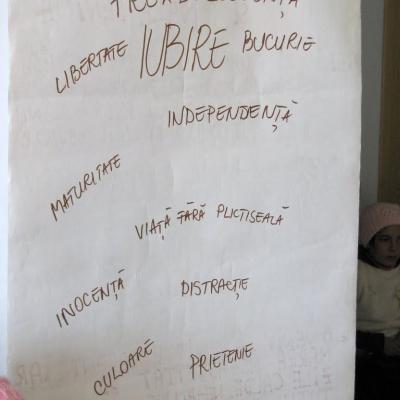 LIBERTATE IUBIRE BUCURIE
INDEPENDENȚĂ
MATURITATE
VIAȚĂ FĂRĂ PLICTISEALĂ
INOCENȚĂ DISTRACȚIE
CULOARE PRIETENIE